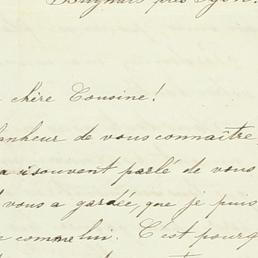 près Lyon.
chère Cousine!
de vous connaître,
a si souvent parlé de vous
vous a gardée, que je puis
comme lui. C'est pourq